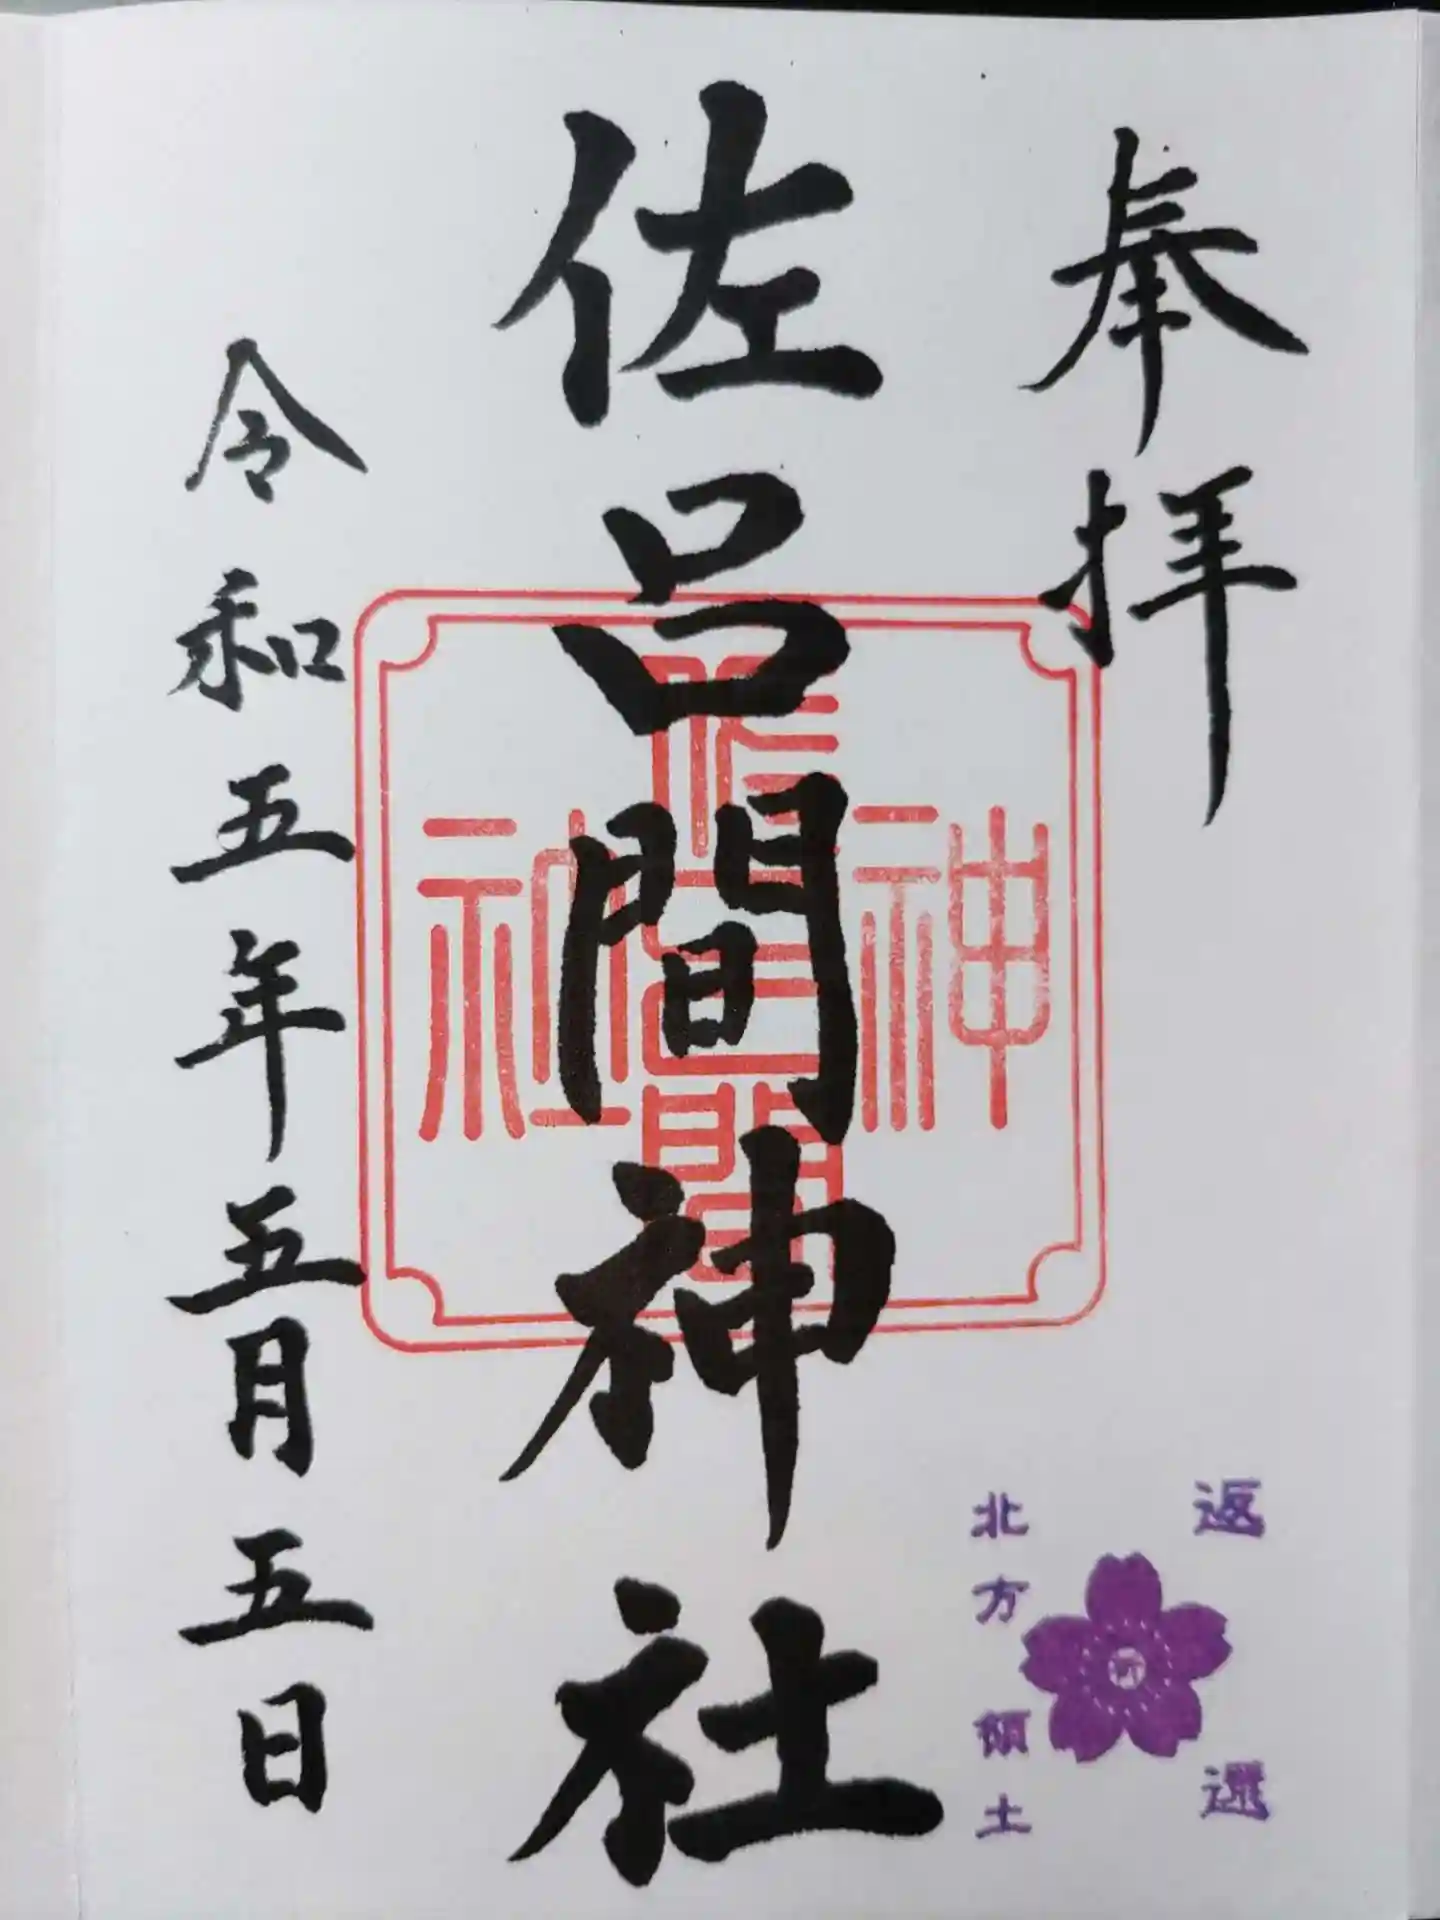 奉拝
佐呂間神社
令和五年五月五日
佐呂間
神社
祈
北方領土
返還